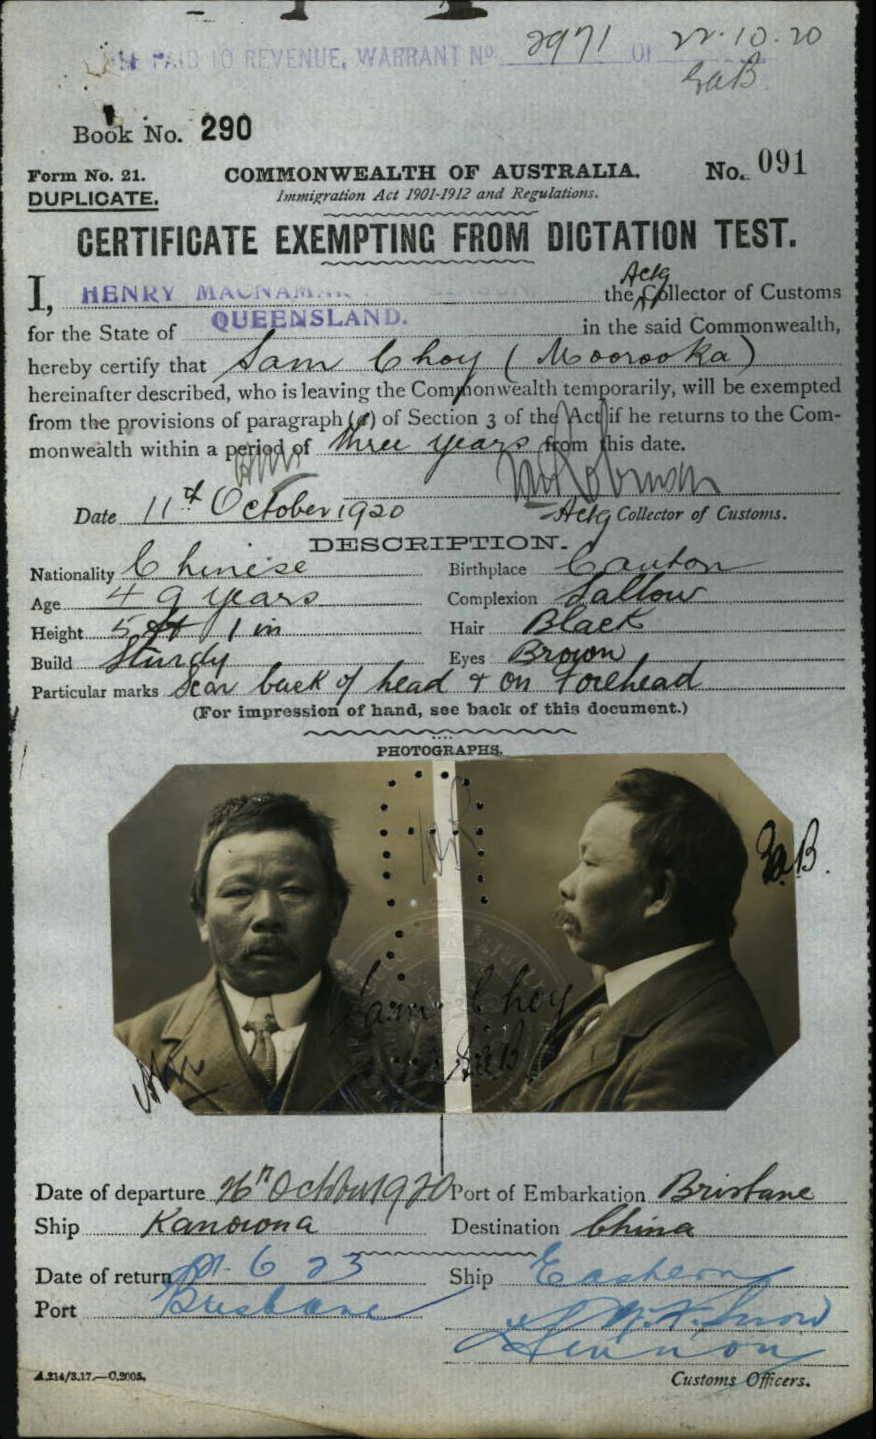 PAID TO REVENUE, WARRANT No. 2971 OF 22.10.20
GaB
Book No. 290
Form No. 21. COMMONWEALTH OF AUSTRALIA. No. 091
DUPLICATE. Immigration Act 1901-1912 and Regulations.
CERTIFICATE EXEMPTING FROM DICTATION TEST.
I, HENRY MACNAMAR the Actg Collector of Customs
for the State of QUEENSLAND. in the said Commonwealth,
hereby certify that Sam Choy (Moorooka)
hereinafter described, who is leaving the Commonwealth temporarily, will be exempted
from the provisions of paragraph (a) of Section 3 of the Act if he returns to the Com-
monwealth within a period of three years from this date.
Date 11th October 1920 Actg Collector of Customs.
DESCRIPTION.
Nationality Chinese Birthplace Canton
Age 49 years Complexion Sallow
Height 5 ft 1 in Hair Black
Build Sturdy Eyes Brown
Particular marks Scar back of head & on Forehead
(For impression of hand, see back of this document.)
PHOTOGRAPHS.
GaB.
Sam Choy
Date of departure 26th October 1920 Port of Embarkation Brisbane
Ship Kanowna Destination China
Date of return 6 23 Ship Eastern
Port Brisbane
Customs Officers.
A.214/3.17.—C.2005.